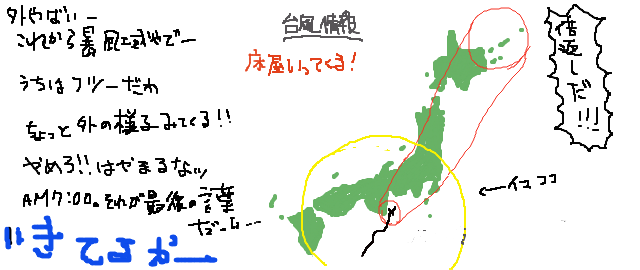 外やばいー
これから暴風域やでー
うちはフツーだわ
ちょっと外の様子みてくる!!
やめろ!!はやまるなッ
AM7:00。それが最後の言葉
だった…
いきてるがー
台風情報
床屋いってくる!
倍返しだ!!!
←イマココ